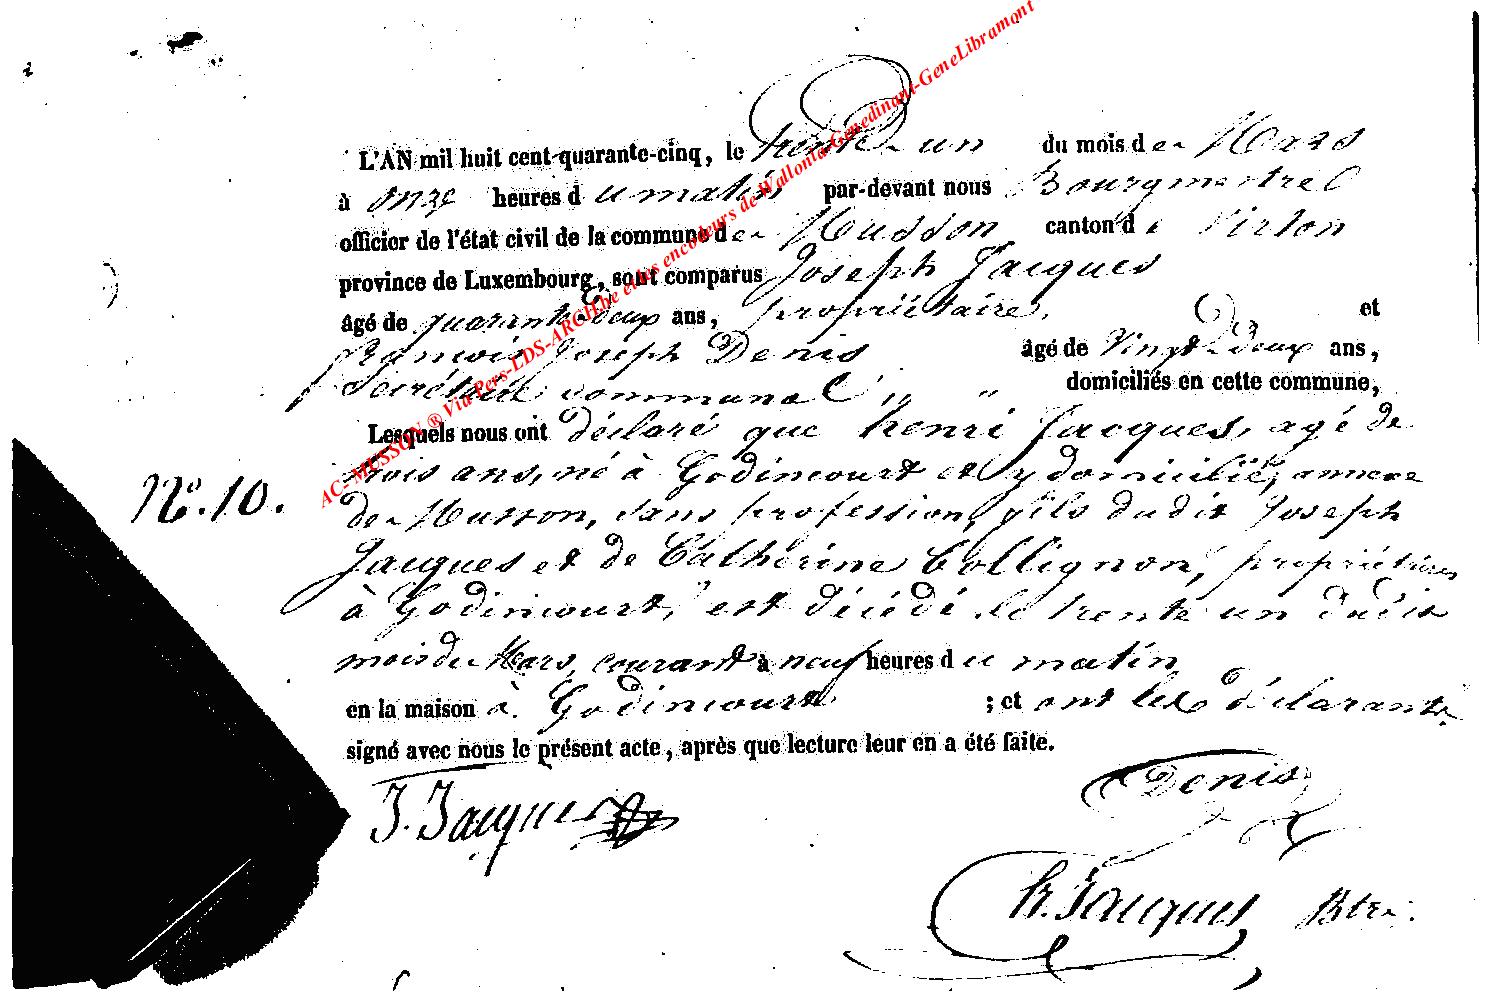 L'AN mil huit cent quarante-cinq, le trente un du mois de Mars
à onze heures du matin par-devant nous Bourgmestre
officier de l'état civil de la commune de Musson canton de Virton
province de Luxembourg, sont comparus Joseph Jacques
âgé de quarante deux ans, propriétaire, et
François Joseph Denis âgé de Vingt deux ans,
Secrétaire communal, " domiciliés en cette commune,
Lesquels nous ont déclaré que henri Jacques, agé de
trois ans, né à Godincourt et y domicilié, annexe
N.º 10.
de Musson, sans profession, fils dudit Joseph
Jacques et de Catherine Collignon, propriétaires
à Godincourt, est décédé le trente un dudit
mois de Mars, courant à neuf heures du matin
en la maison à Godincourt ; et ont les déclarants
signé avec nous le présent acte, après que lecture leur en a été faite.
J. Jacques Denis
h. Jacques Btre.
AC-MUSSON ® Via Pers-LDS-ARCH.be et les encodeurs de Wallonia-Genedinant-GeneLibramont